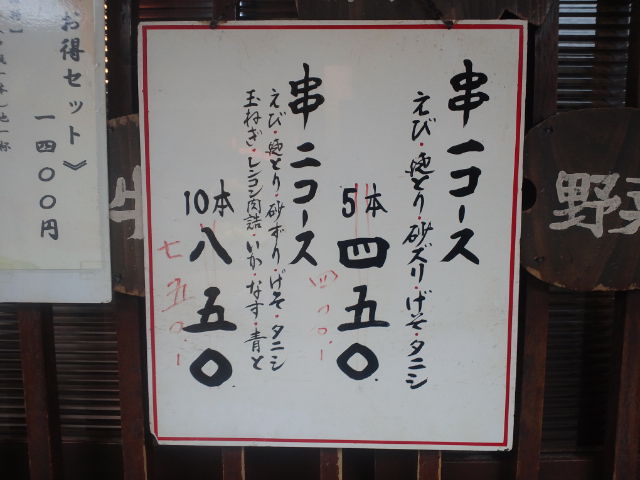 串一コース
えび・地とり・砂ズリ・げそ・タニシ
5本 四五〇
四〇〇
串二コース
えび・地とり・砂ずり・げそ・タニシ
玉ねぎ・レンコン肉詰・いか・なす・青と
10本 八五〇
七五〇
お得セット》
一四〇〇円
野菜
牛